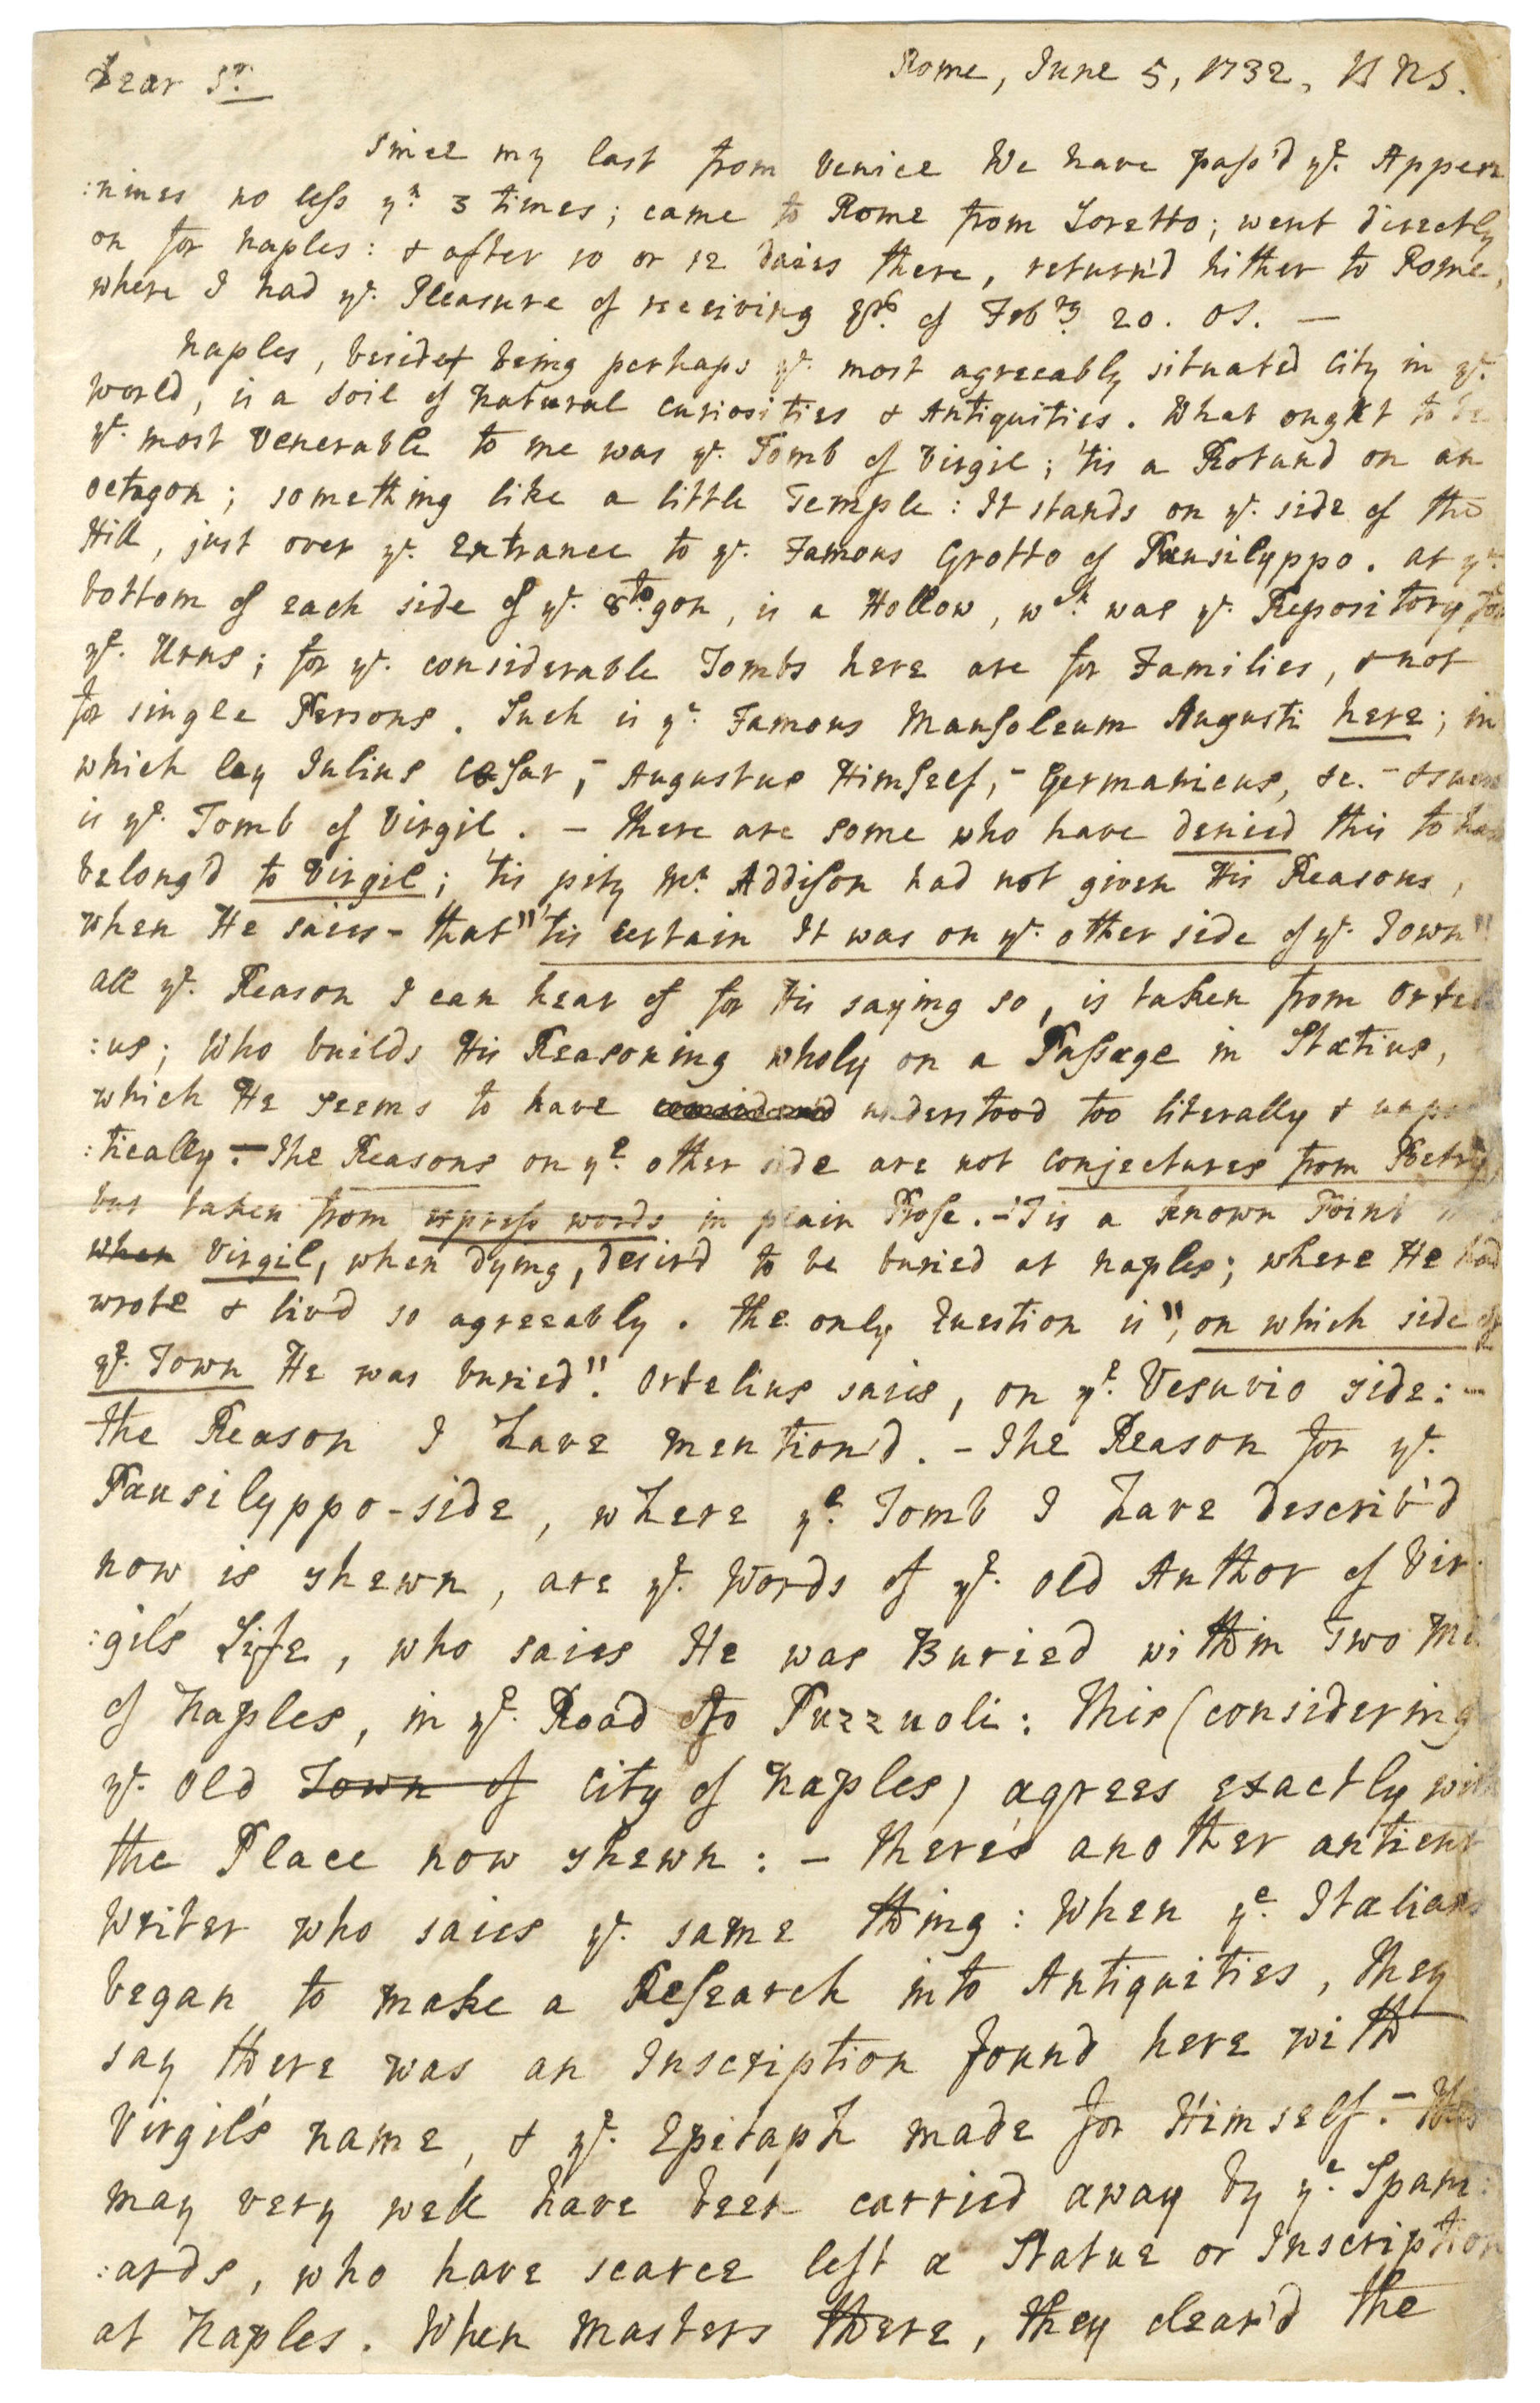 Dear Sr.
Rome, June 5, 1732, NS.
Since my last from Venice We have pass'd ye. Appen
:nines no less yn. 3 times; came to Rome from Loretto; went directly
on for Naples: & after 10 or 12 daies there, return'd hither to Rome,
where I had ye. Pleasure of receiving yrs. of Febry. 20. OS. —
Naples, beside being perhaps ye. most agreeably situated City in ye.
World, is a Soil of Natural Curiosities & Antiquities. What ought to be
ye. most Venerable to me was ye. Tomb of Virgil; 'tis a Rotund on an
octagon; something like a little Temple: It stands on ye. side of the
Hill, just over ye. Entrance to ye. Famous Grotto of Pausilyppo. at ye.
bottom of each side of ye. 8togon, is a Hollow, wch. was ye. Repository for
ye. Urns; for ye. considerable Tombs here are for Families, & not
for single Persons. Such is ye. Famous Mausoleum Augusti here; in
which lay Julius Cæsar, - Augustus Himself, - Germanicus, &c. -
is ye. Tomb of Virgil. - There are some who have denied this to have
belong'd to Virgil; 'tis pity Mr. Addison had not given His Reasons,
when He saies - that "'tis certain It was on ye. other side of ye. Town"
all ye. Reason I can hear of for His saying so, is taken from Orteli
:us; Who builds His Reasoning wholy on a Passage in Statius,
which He seems to have considered understood too literally & unpoe
:tically. - The Reasons on ye. other side are not conjectures from Poetry,
but taken from express words in plain Prose. - 'Tis a known Point
when Virgil, when dying, desir'd to be buried at Naples; where He had
wrote & liv'd so agreeably. The only Question is ", on which side of
ye. Town He was buried". Ortelius saies, on ye. Vesuvio side: -
the Reason I have mention'd. - The Reason for ye.
Pausilyppo-side, where ye. Tomb I have describ'd
now is shewn, are ye. Words of ye. old Author of Vir
:gil's Life, who saies He was Buried within Two
of Naples, in ye. Road to Puzzuoli: This (considering
ye. old Town of City of Naples) agrees exactly with
the Place now shewn: - there's another antient
Writer who saies ye. same thing: When ye. Italians
began to make a Research into Antiquities, they
say there was an Inscription found here with
Virgil's name, & ye. Epitaph made for Himself. - this
may very well have been carried away by ye. Spani
:ards, who have scarce left a Statue or Inscription
at Naples. When Masters there, they clear'd the